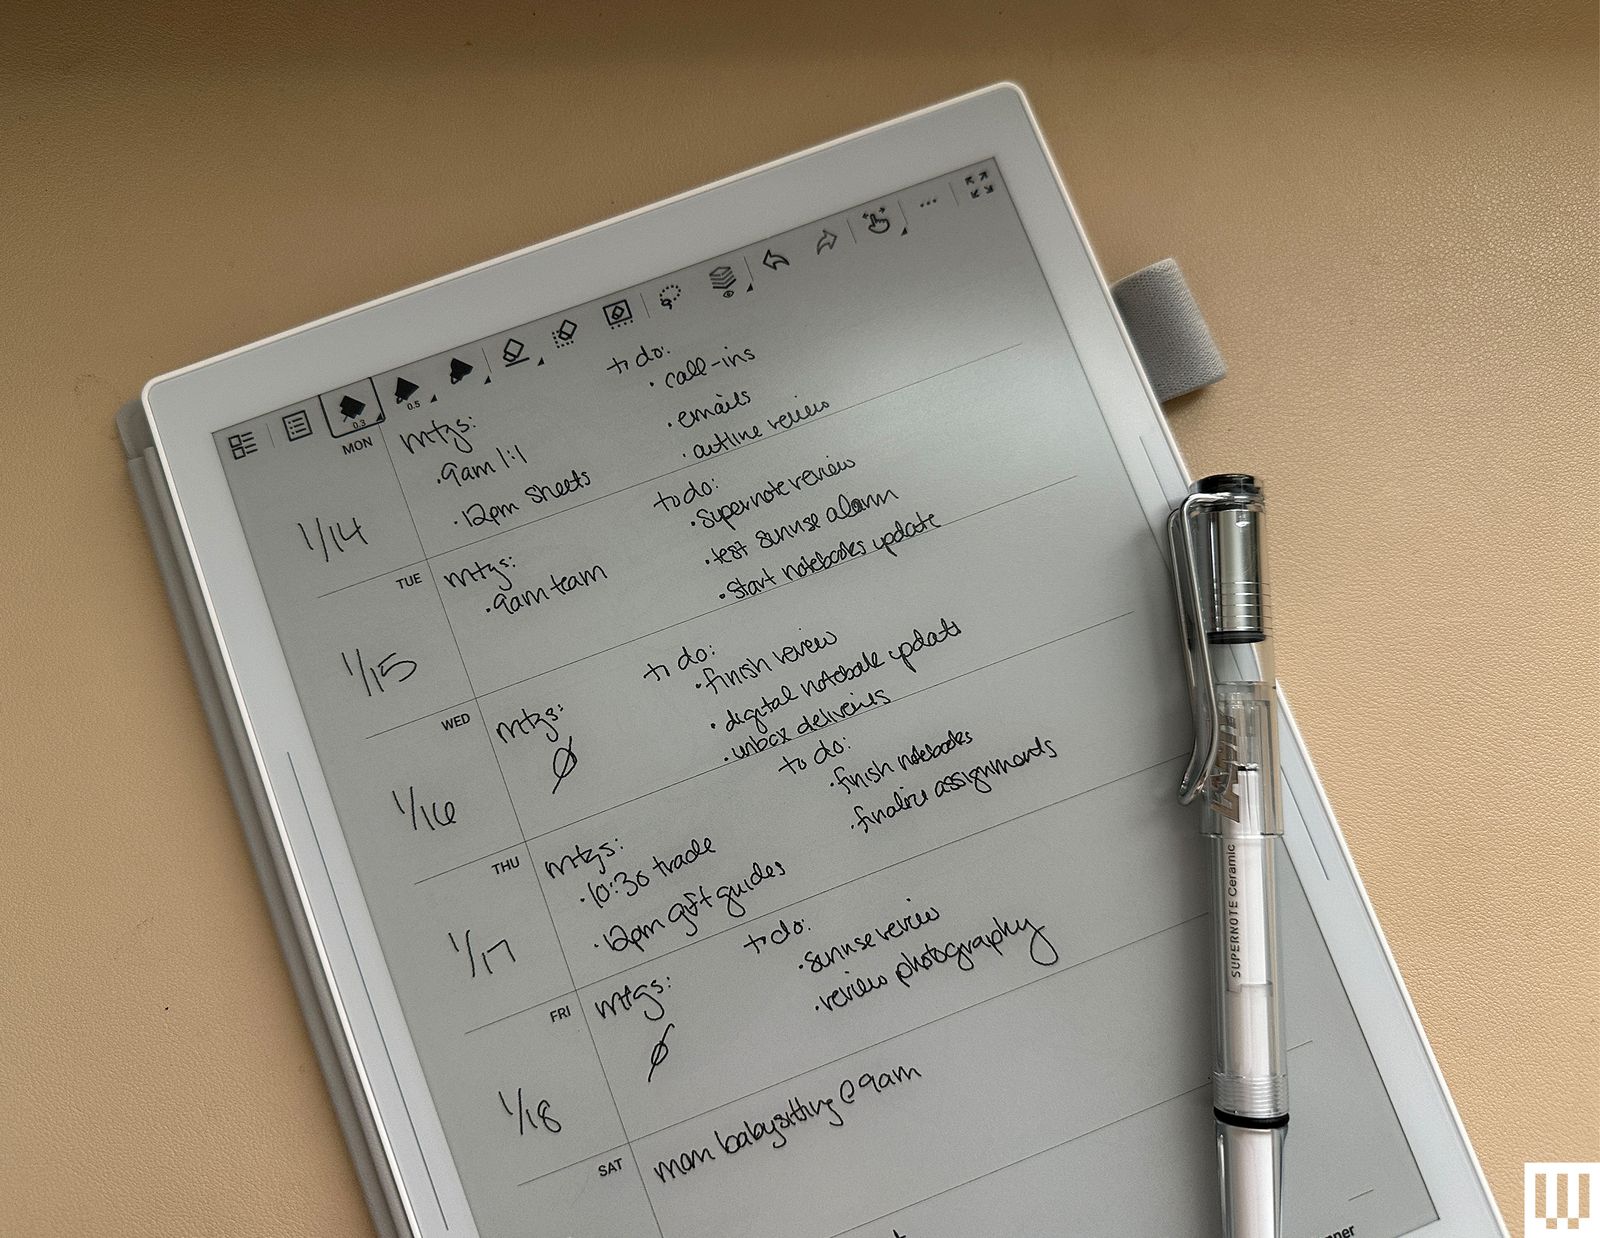 0.3
0.5
MON
1/14
mtgs:
• 9am 1:1
• 12pm Sheets
to do:
• call-ins
• emails
• outline review
TUE
1/15
mtgs:
• 9am team
to do:
• Supernote review
• test sunrise alarm
• Start notebooks update
WED
1/16
mtgs:
Ø
to do:
• finish review
• digital notebook update
• unbox deliveries
THU
1/17
mtgs:
• 10:30 trade
• 12pm gift guides
to do:
• finish notebooks
• finalize assignments
FRI
1/18
mtgs:
Ø
to do:
• sunrise review
• review photography
SAT
mom babysitting @ 9am
LAMY
SUPERNOTE Ceramic
W